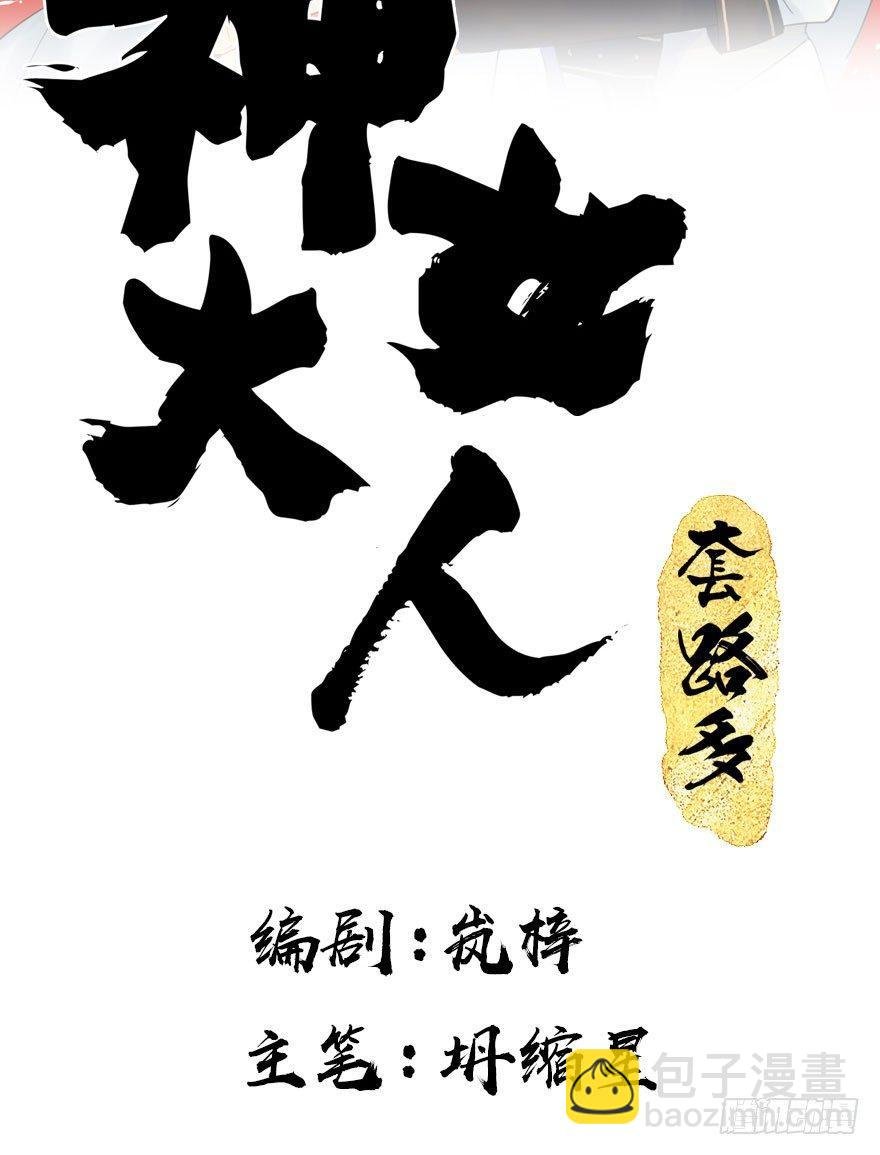 神女
大人
套路多
编剧：岚梓
主笔：坍缩星
包子漫畫
baozimh.com